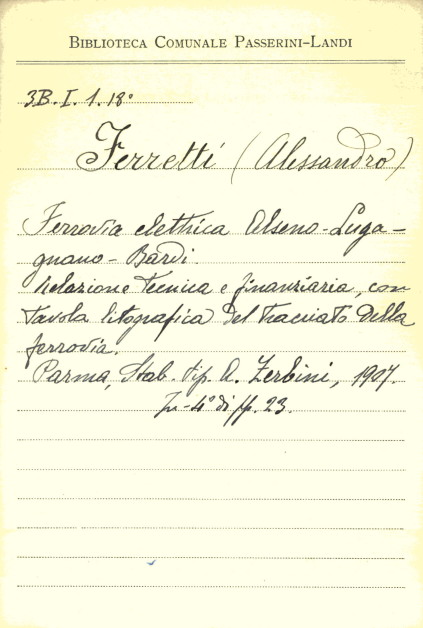 BIBLIOTECA COMUNALE PASSERINI-LANDI
3B.I.1.18°
Ferretti (Alessandro)
Ferrovia elettrica Alseno-Luga-
gnano-Bardi.
Relazione tecnica e finanziaria, con
tavola litografica del tracciato della
ferrovia.
Parma, Stab. tip. A. Zerbini, 1907.
In-4° di pp. 23.